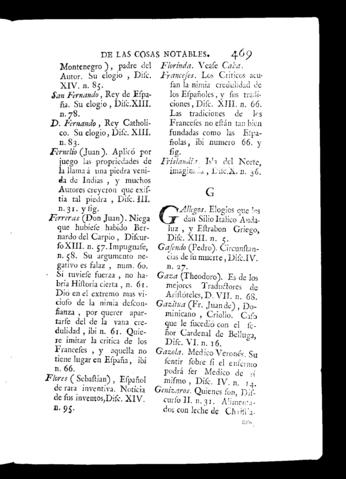 DE LAS COSAS NOTABLES. 469
Montenegro), padre del
Autor. Su elogio, Disc.
XIV. n. 85.
San Fernando, Rey de Espa-
ña. Su elogio, Disc. XIII.
n. 78.
D. Fernando, Rey Catholi-
co. Su elogio, Disc. XIII.
n. 83.
Fernelio (Juan). Aplicó por
juego las propiedades de
la llama á una piedra veni-
da de Indias, y muchos
Autores creyeron que exis-
tia tal piedra, Disc. III.
n. 31. y sig.
Ferreras (Don Juan). Niega
que hubiese habido Ber-
nardo del Carpio, Discur-
so XIII. n. 57. Impugnase,
n. 58. Su argumento ne-
gativo es falaz, num. 60.
Si tuviese fuerza, no ha-
bria Historia cierta, n. 61.
Dio en el extremo mas vi-
cioso de la nimia descon-
fianza, por querer apar-
tarse del de la vana cre-
dulidad, ibi n. 61. Quie-
re imitar la critica de los
Franceses, y aquella no
tiene lugar en España, ibi
n. 66.
Flores (Sebastian), Español
de rara inventiva. Noticia
de sus inventos, Disc. XIV.
n. 95.
Florinda. Vease Caba.
Franceses. Los Criticos acu-
san la nimia credulidad de
los Españoles, y sus tradi-
ciones, Disc. XIII. n. 66.
Las tradiciones de los
Franceses no están tan bien
fundadas como las Espa-
ñolas, ibi numero 66. y
sig.
Frislandia. Isla del Norte,
imaginaria, Disc. X. n. 36.
G
Gallegos. Elogios que les
dan Silio Italico Anda-
luz, y Estrabon Griego,
Disc. XIII. n. 5.
Gasendo (Pedro). Circunstan-
cias de su muerte, Disc. IV.
n. 27.
Gaza (Theodoro). Es de los
mejores Traductores de
Aristóteles, D. VII. n. 68.
(Fr. Juan de), Do-
minicano, Criollo. Caso
que le sucedió con el se-
ñor Cardenal de Belluga,
Disc. VI. n. 16.
Gazola. Medico Veronés. Su
sentir sobre si el enfermo
podrá ser Medico de sí
mismo, Disc. IV. n. 14.
Genizaros. Quienes son, Dis-
curso II. n. 31. Alimenta-
dos con leche de Christia-